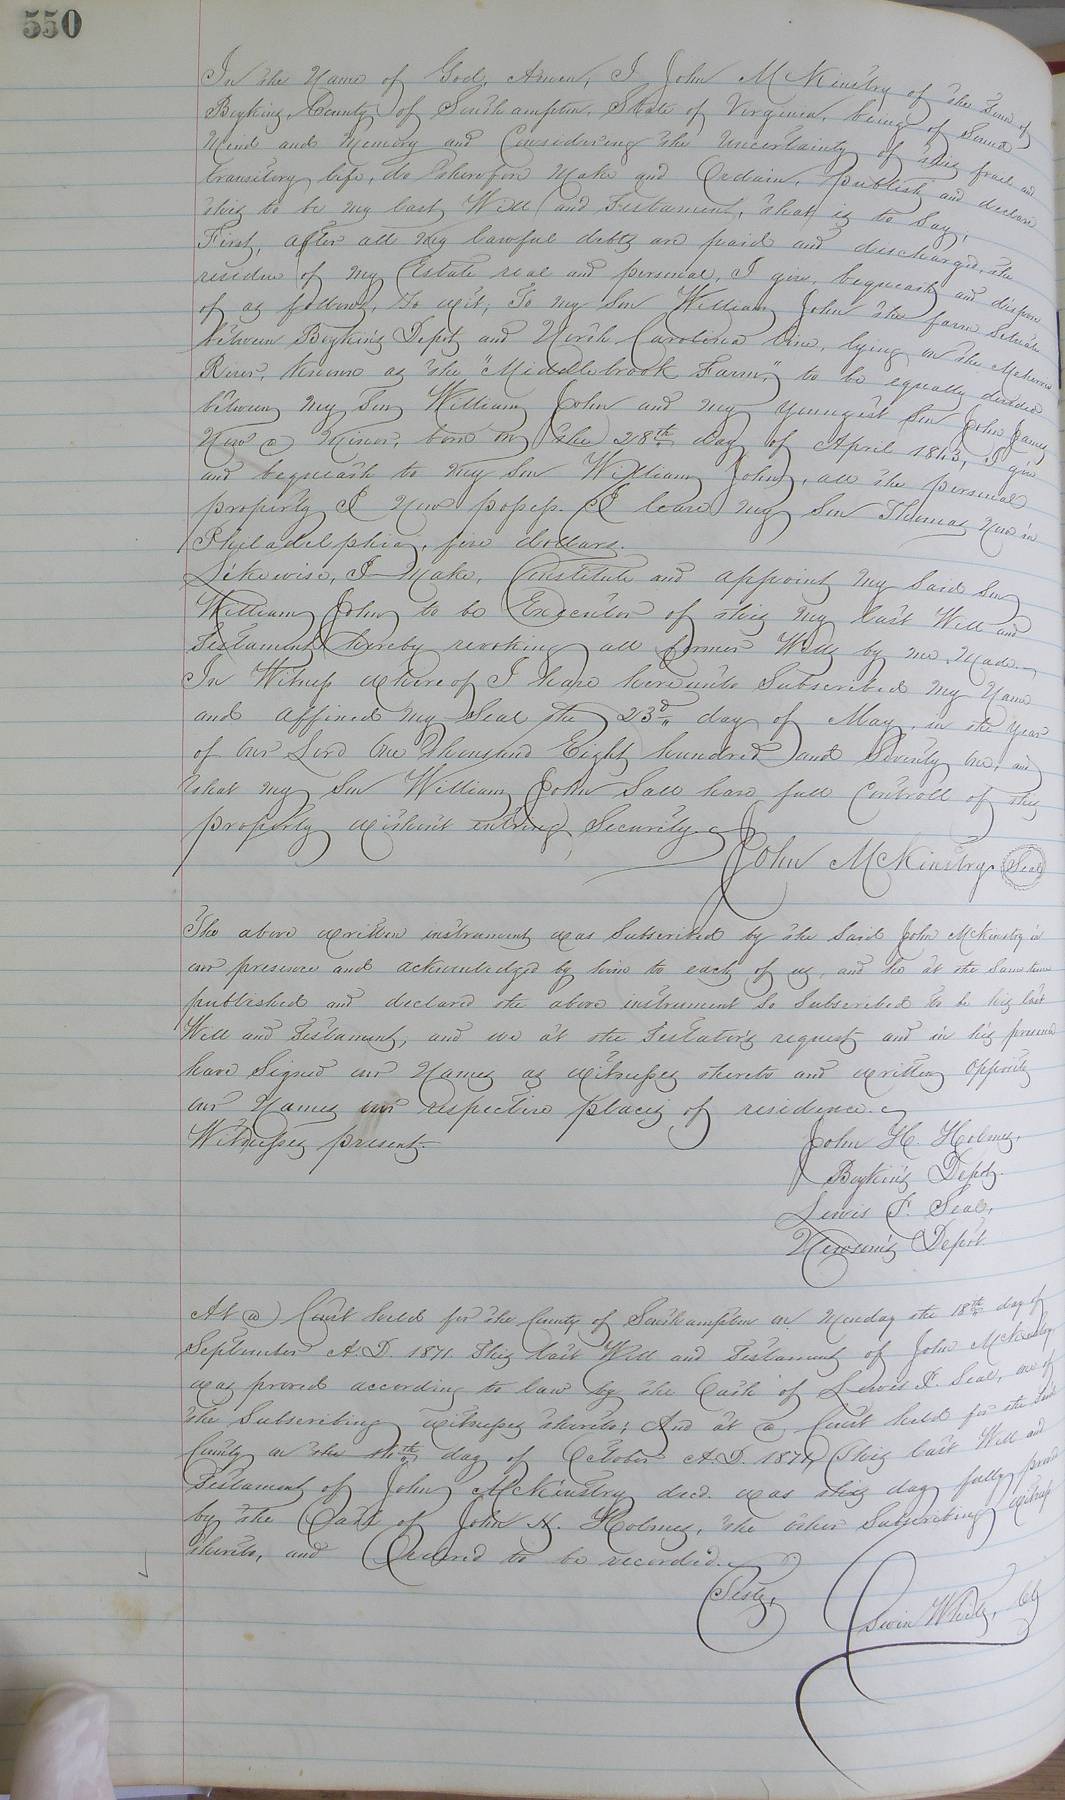 550
In the Name of God, Amen, I John McKinstry of the Town of
Boykins, County of Southampton, State of Virginia, being of Sound
Mind and Memory and Considering the Uncertainty of this frail and
transitory life, do therefore Make and Ordain, publish and declare
this to be my last Will and Testament, that is to Say;
First, after all my lawful debts are paid and discharged, the
residue of my Estate real and personal, I give, bequeath and dispose
of as follows, to wit; To my Son William John the farm Situate
between Boykins Depot and North Carolina line, lying on the Meherrin
River, known as the "Middlebrook Farm," to be equally divided
between my Son William John and my youngest Son John James
Now a Minor, born on the 28th day of April, I give
and bequeath to my Son William John, all the personal
property I Now possess. I leave my Son Thomas Now in
Philadelphia, five dollars.
Likewise, I Make, Constitute and appoint my Said Son
William John to be Executor of this my last Will and
Testament hereby revoking all former Wills by me Made.
In Witness whereof I have hereunto Subscribed my Name
and affixed my Seal the 23d day of May, in the year
of our Lord One Thousand Eight hundred and Seventy One, and
that my Son William John Sall have full Controll of this
property without entring Security.
John McKinstry Seal
The above written instrument was Subscribed by the Said John McKinstry in
our presence and acknowledged by him to each of us, and he at the Same time
published and declared the above instrument So Subscribed to be his last
Will and Testament, and we at the Testator's request and in his presence
have Signed our Names as witnesses thereto and written Opposite
our Names our respective places of residence.
Witnesses present.
John H. Holmes,
Boykins Depot.
Lewis F. Seal,
Newsom's Depot.
At a Court held for the County of Southampton on Monday the 18th day of
September A.D. 1871. This last Will and Testament of John McKinstry
was proved according to law by the Oath of Lewis F. Seal, one of
the Subscribing witnesses thereto; And at a Court held for the Said
County on the 16th day of October A.D. 1871, This last Will and
Testament of John McKinstry decd. was this day fully proved
by the Oath of John H. Holmes, the other Subscribing witness
thereto, and Ordered to be recorded.
Teste,
White, Clk